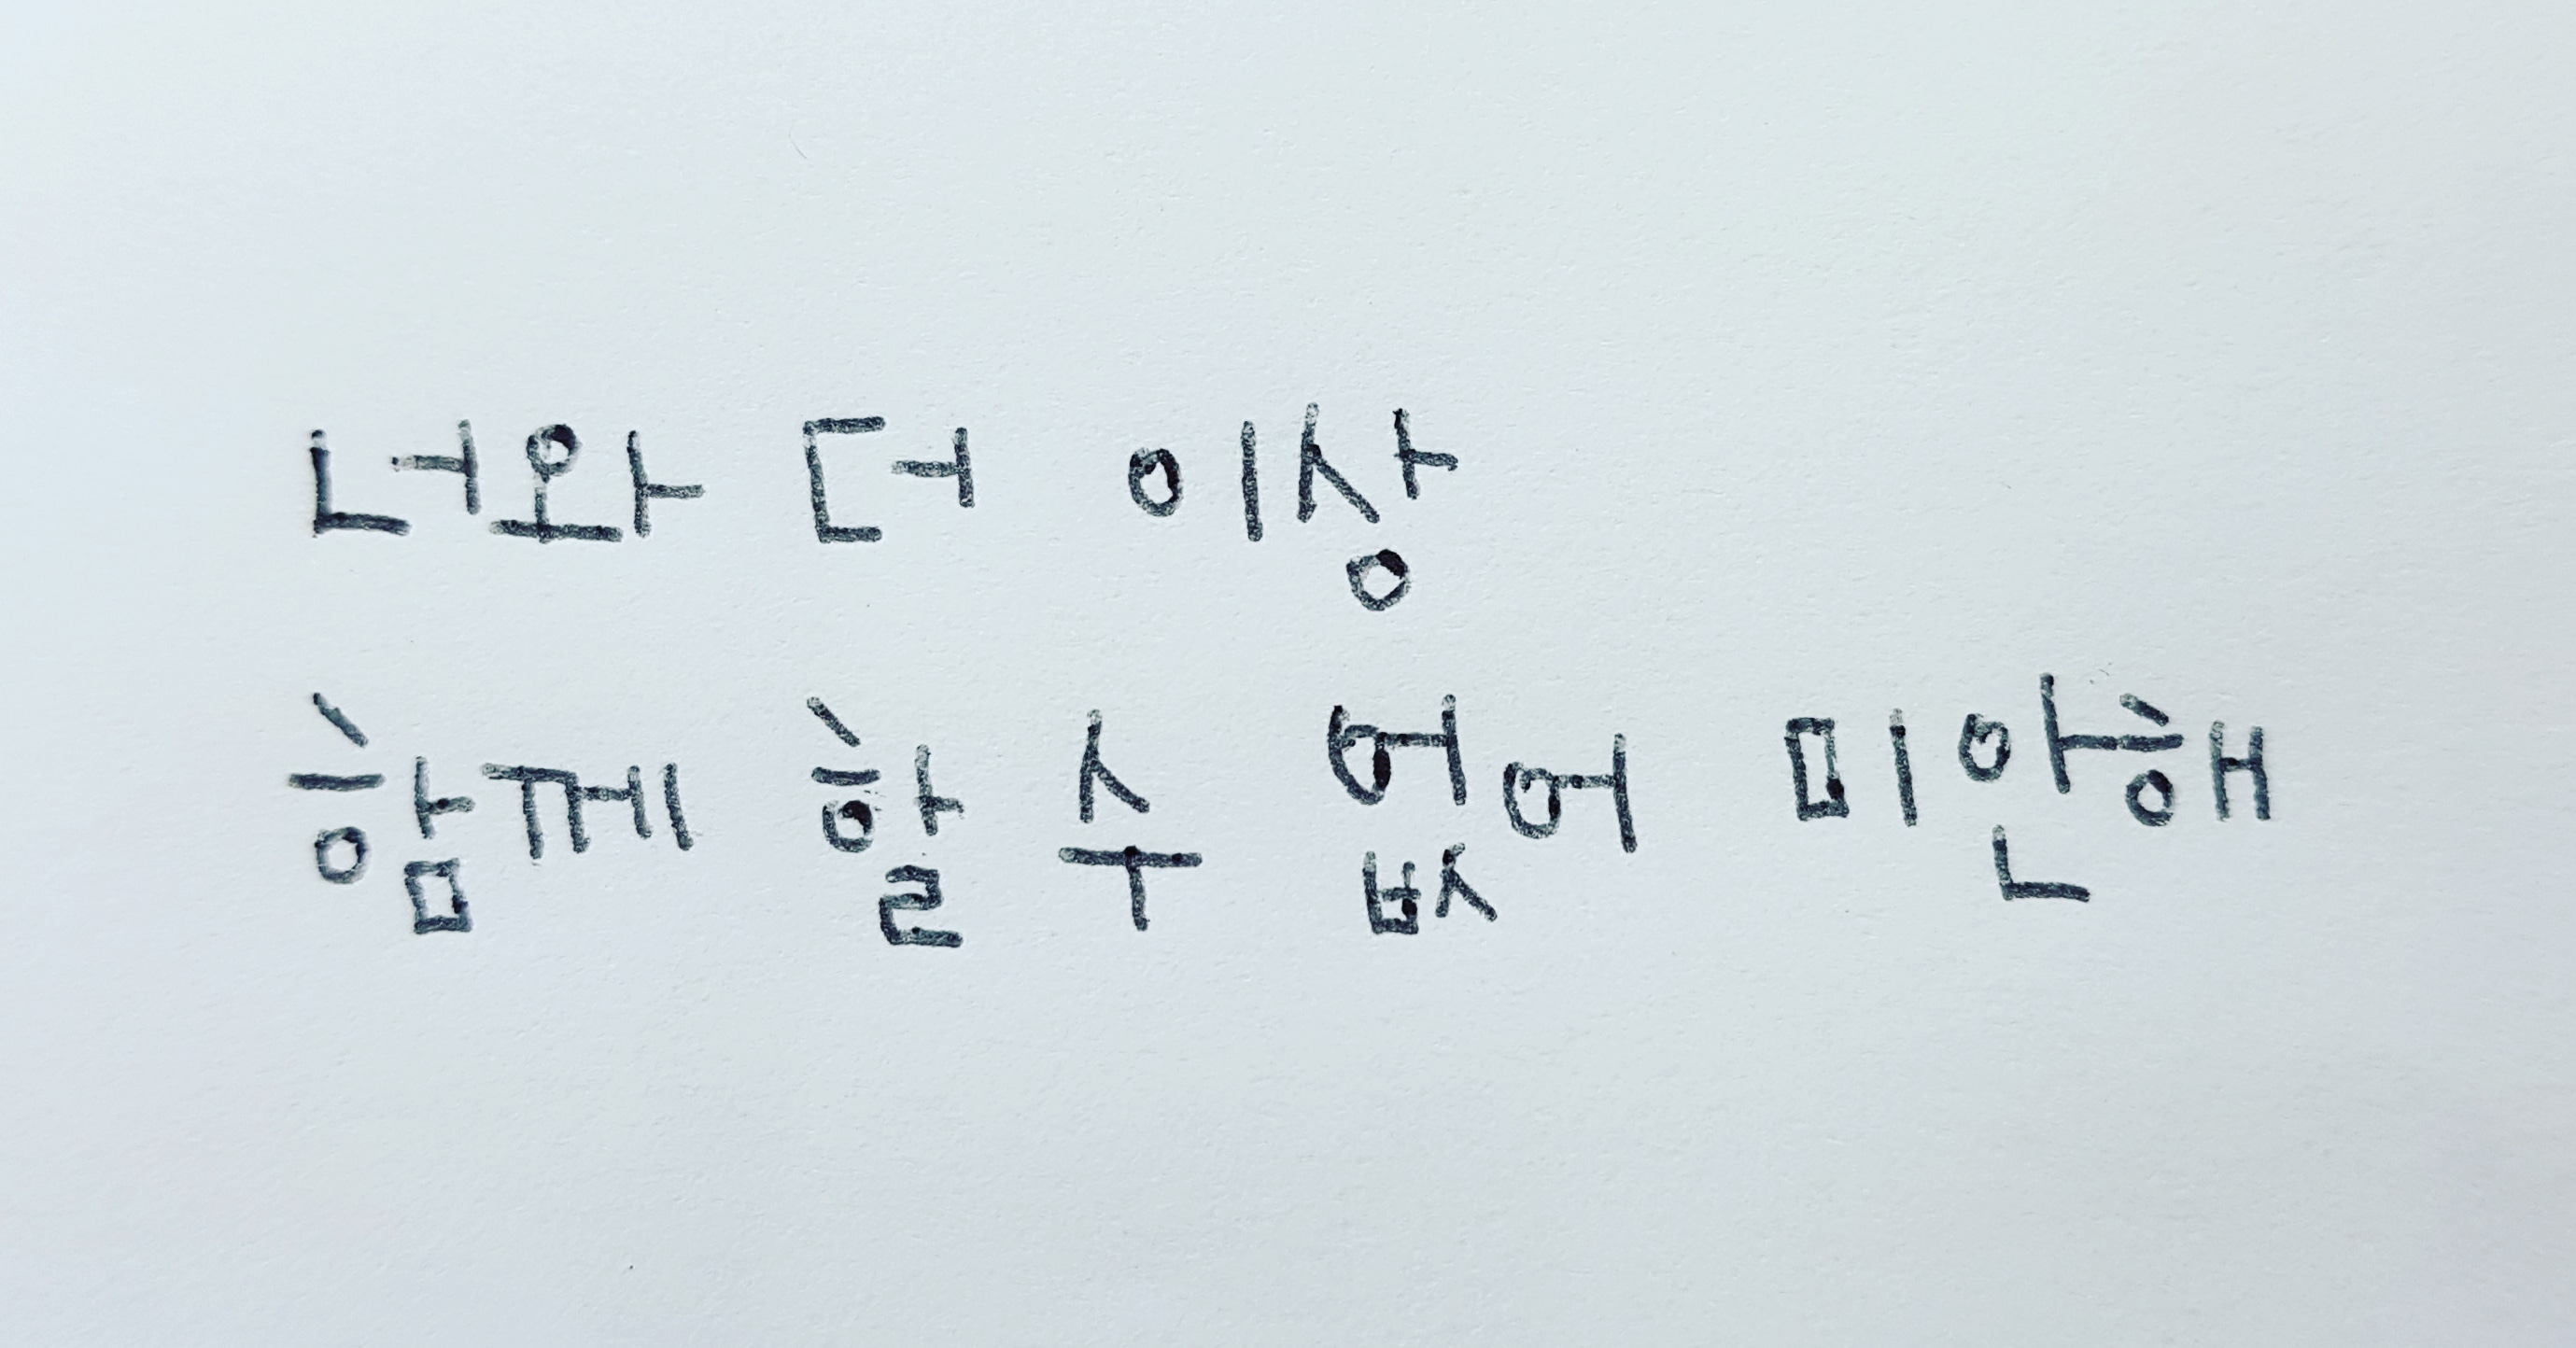 너와 더 이상
함께 할 수 없어 미안해